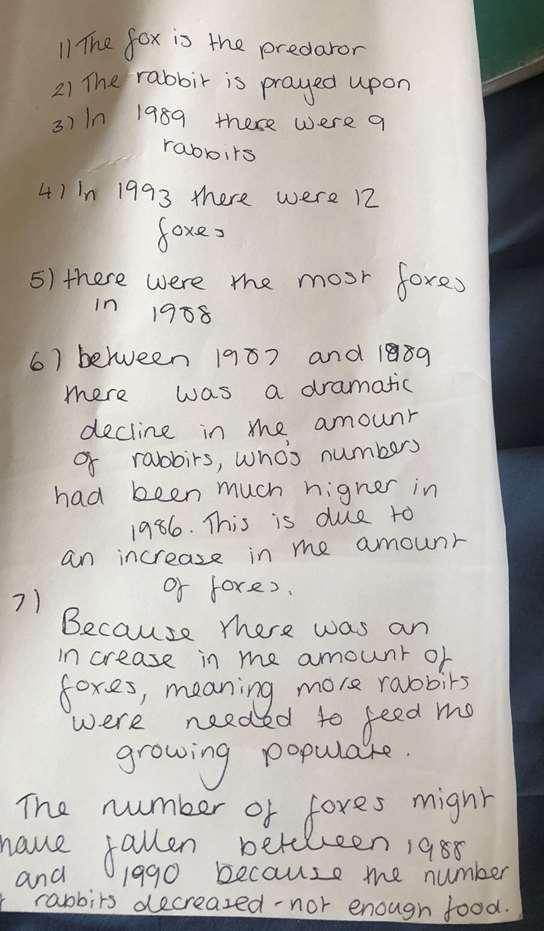 1) The fox is the predator
2) The rabbit is prayed upon
3) In 1989 there were 9
rabbits
4) In 1993 there were 12
foxes
5) there were the most foxes
in 1988
6) between 1987 and 1989
there was a dramatic
decline in the amount
of rabbits, who's numbers
had been much higher in
1986. This is due to
an increase in the amount
of foxes.
7)
Because there was an
increase in the amount of
foxes, meaning more rabbits
were needed to feed the
growing populate.
The number of foxes might
have fallen between 1988
and 1990 because the number
rabbits decreased - not enough food.